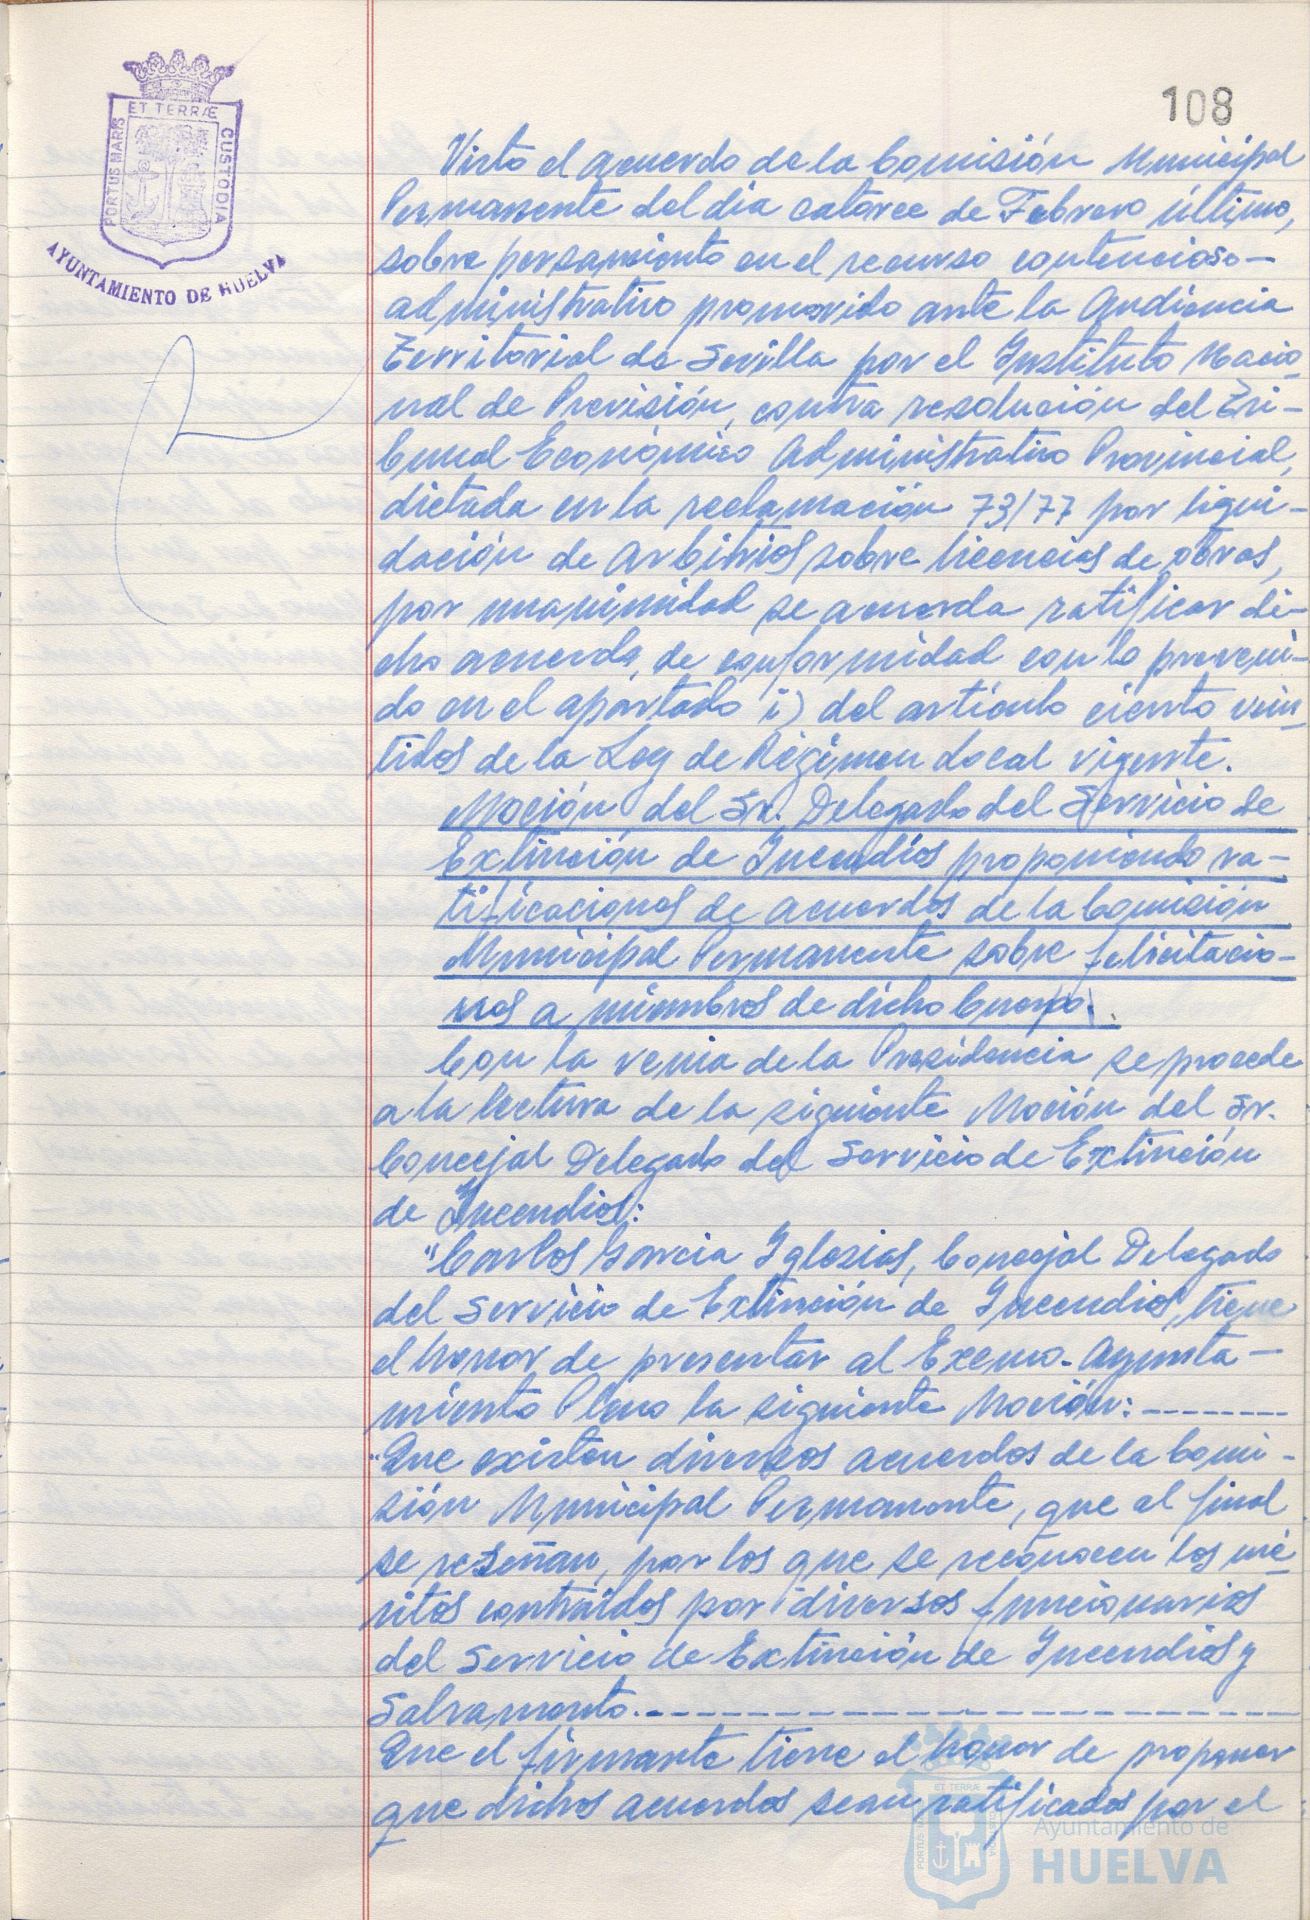 108
ET TERRÆ
PORTUS MARIS
CUSTODIA
AYUNTAMIENTO DE HUELVA
Visto el acuerdo de la Comisión Municipal
Permanente del día catorce de Febrero último,
sobre personamiento en el recurso contencioso-
administrativo promovido ante la Audiencia
Territorial de Sevilla por el Instituto Nacio-
nal de Previsión, contra resolución del Tri-
bunal Económico Administrativo Provincial,
dictada en la reclamación 73/77 por liqui-
dación de arbitrios sobre licencias de obras,
por unanimidad se acuerda ratificar di-
cho acuerdo, de conformidad con lo preveni-
do en el apartado i) del artículo ciento vein-
tidos de la Ley de Régimen Local vigente.
Moción del Sr. Delegado del Servicio de
Extinción de Incendios proponiendo ra-
tificaciones de acuerdos de la Comisión
Municipal Permanente sobre felicitacio-
nes a miembros de dicho Cuerpo.
Con la venia de la Presidencia se procede
a la lectura de la siguiente Moción del Sr.
Concejal Delegado del Servicio de Extinción
de Incendios:
"Carlos García Iglesias, Concejal Delegado
del Servicio de Extinción de Incendios, tiene
el honor de presentar al Excmo. Ayunta-
miento Pleno la siguiente Moción:--------
"Que existen diversos acuerdos de la Comi-
sión Municipal Permanente, que al final
se reseñan, por los que se reconocen los mé-
ritos contraídos por diversos funcionarios
del Servicio de Extinción de Incendios y
Salvamento.--------------------
Que el firmante tiene el honor de proponer
que dichos acuerdos sean ratificados por el
ET TERRÆ
PORTUS MARIS
CUSTODIA
Ayuntamiento de
HUELVA